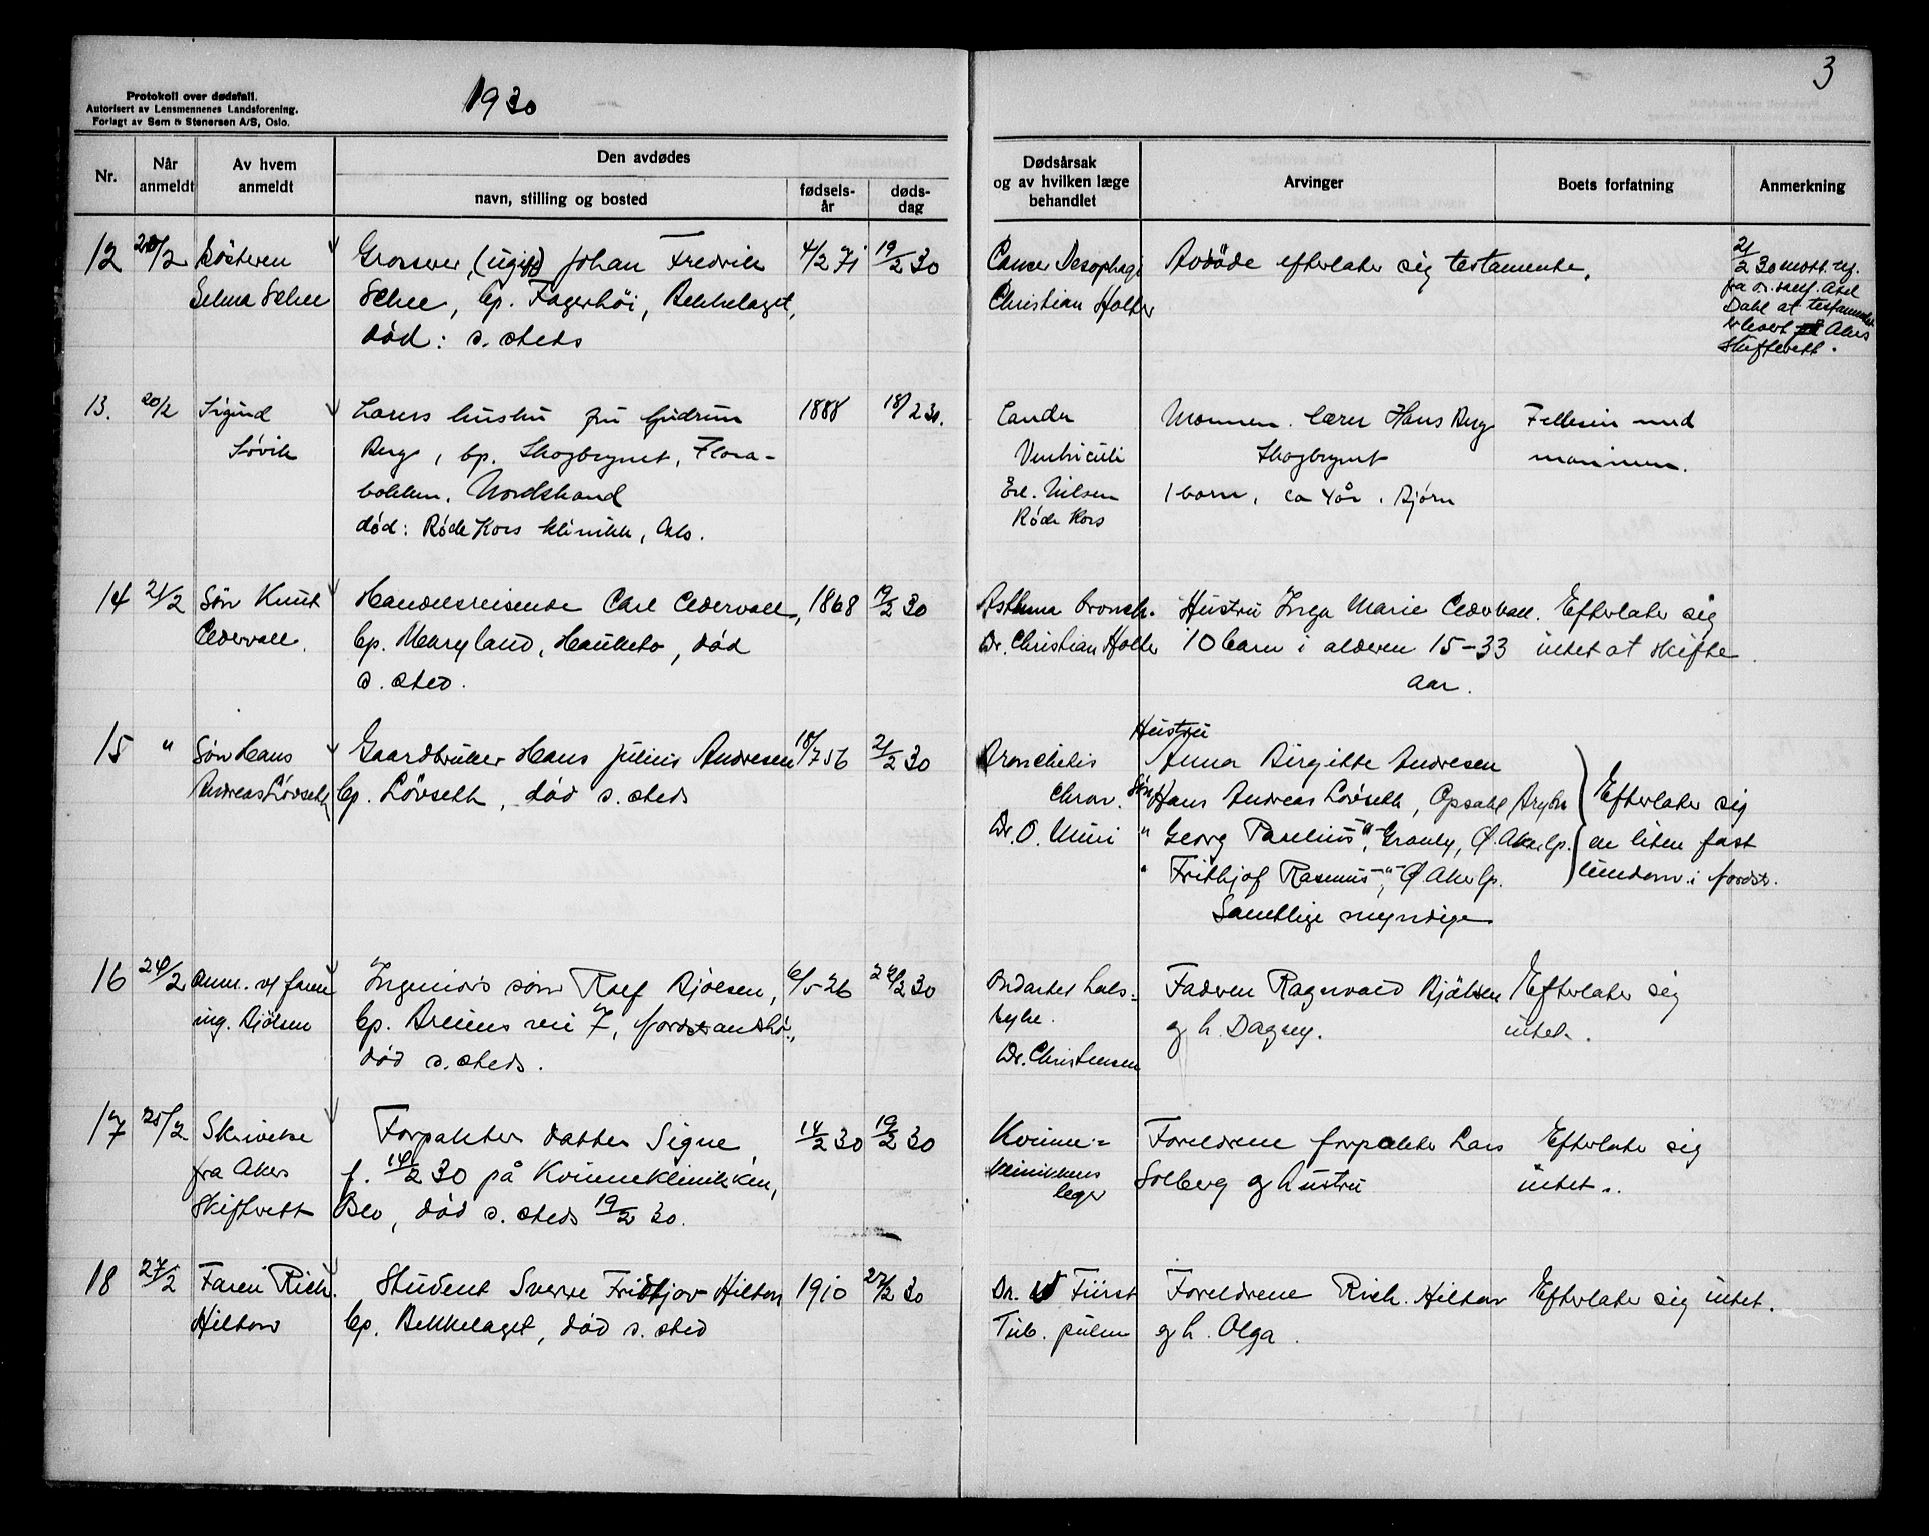 3
Protokoll over dødsfall.
Autorisert av Lensmennenes Landsforening.
Forlagt av Sem & Stenersen A/S, Oslo.
1930
Nr.
Når anmeldt
Av hvem anmeldt
Den avdødes
navn, stilling og bosted
fødsels-år
døds-dag
Dødsårsak og av hvilken læge behandlet
Arvinger
Boets forfatning
Anmerkning
12 20/2
Søsteren
Selma Schee
Grosserer (ugift) Johan Fredrik
Schee, bp. Fagerhöi, Bekkelaget,
död: s. steds
4/2 71 19/2 30
Cancer Oesophagi
Christian Holter
Avdöde efterlater sig testamente.
21/2 30 mott.
fra Axel
Dahl at testamentet
er levert Akers
Skifterett.
13. 20/2
Sigurd
Søvik
Lærers hustru fru Gudrun
Berg, bp. Skogbrynet, Flora-
bakken, Nordstrand
død: Røde Kors klinikk, Oslo.
1888 18/2 30.
Ventriculi
Erl. Nilsen
Røde Kors
Mannen lærer Hans Berg
Skogbrynet
1 barn, ca 4 år. Bjørn
Felleseie med
mannen.
14 21/2
Søn Knut
Cedervall.
Handelsreisende Carl Cedervall,
bp. Maryland, Hauketo, död
s. sted.
1868 19/2 30
Asthma bronch.
Dr. Christian Holter
Hustru Inga Marie Cedervall.
10 barn i alderen 15-33
aar.
Efterlater sig
intet at skifte.
15 "
Søn Hans
Andreas Lövseth
Gaardbruker Hans Julius Andresen
bp. Lövseth, död s. steds
18/7 56 21/2 30
Bronchitis
chron.
Dr. O.
Hustru
Anna Birgitte Andresen
Søn Hans Andreas Lövseth, Opsahl
" Georg -"-, Granly, Ø. Aker bp.
" Frithjof Rasmus -"-, Ø Aker bp.
Samtlige myndige
Efterlater sig
en liten fast
eiendom i Nordstr.
16 24/2
Anm. v/ faren
ing. Bjölsen
Ingeniörs sön Rolf Bjölsen,
bp. vei 7, Nordstrandshö.,
död s. steds.
6/5-26 24/2 30
Ondartet hals-
syke.
Dr. Christensen
Faderen Ragnvald Bjölsen
og h. Dagny.
Efterlater sig
intet.
17 25/2
Skrivelse
fra Akers
Skifterett
Forpakter datter Signe,
f. 14/2 30 på Kvinneklinikken,
Oslo, död s. steds 19/2 30.
14/2 30 19/2 30
Kvinne-
klinikkens
leger
Foreldrene forpakter Lars
Solberg og hustru
Efterlater sig
intet.
18 27/2
Faren Rich.
Hilton
Student Sverre Fridtjov Hilton
bp. Bekkelaget, död s. sted
1910 27/2 30
Dr. Fürst
Tub. pulm
Foreldrene Rich. Hilton
og h. Olga.
Efterlater sig intet.